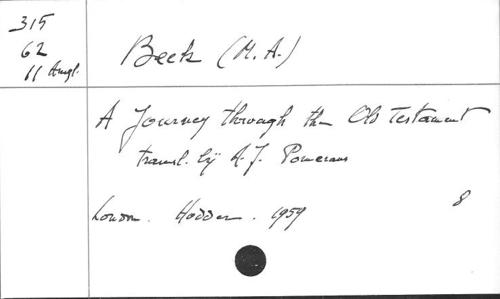 315
62
11 Angl.
Beek (M. A.)
A Journey through the Old Testament
transl. by A. J. Pomerans
London. Hodder. 1959
8